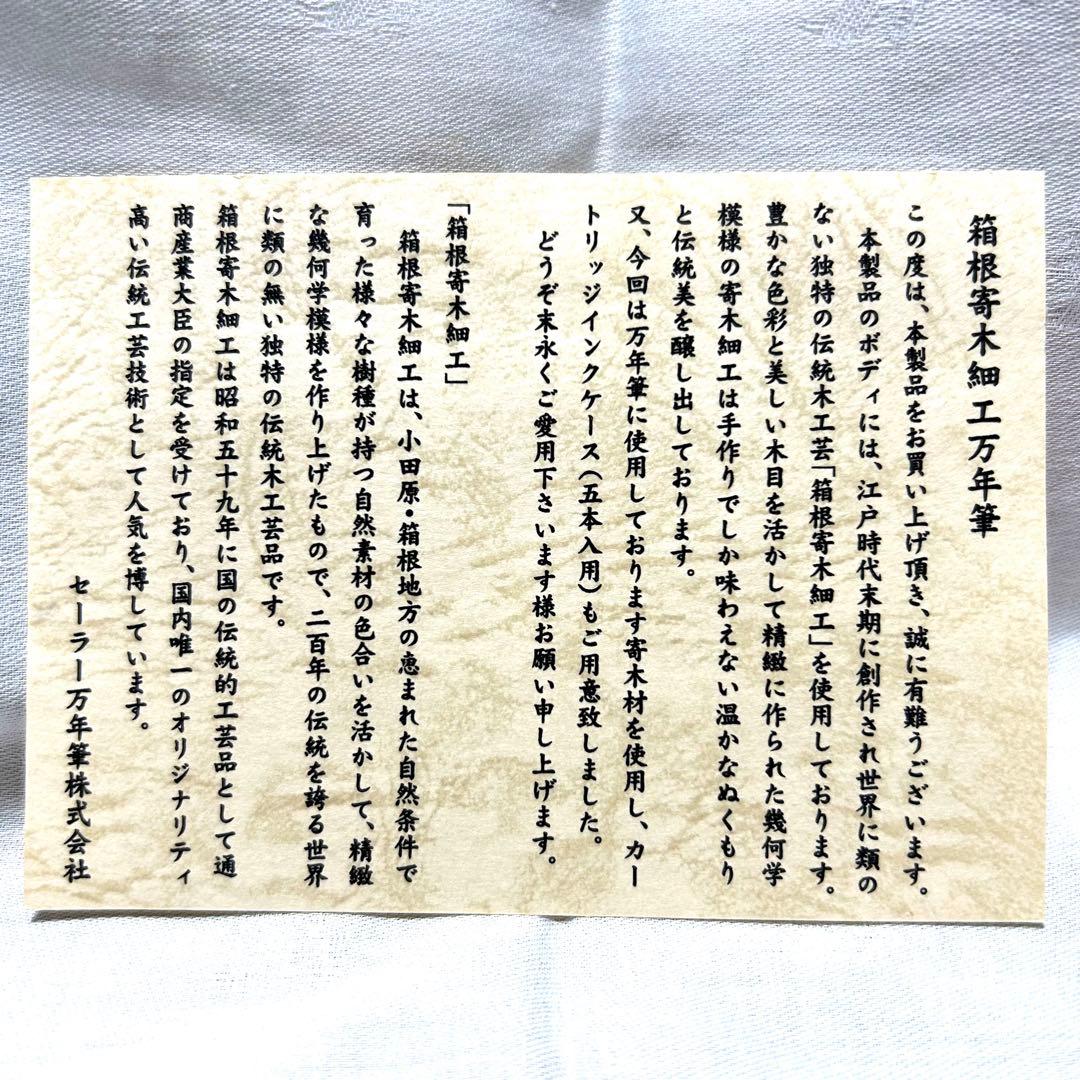 箱根寄木細工万年筆
この度は、本製品をお買い上げ頂き、誠に有難うございます。
本製品のボディには、江戸時代末期に創作され世界に類の
ない独特の伝統木工芸「箱根寄木細工」を使用しております。
豊かな色彩と美しい木目を活かして精緻に作られた幾何学
模様の寄木細工は手作りでしか味わえない温かなぬくもり
と伝統美を醸し出しております。
又、今回は万年筆に使用しております寄木材を使用し、カー
トリッジインクケース(五本入用)もご用意致しました。
どうぞ末永くご愛用下さいます様お願い申し上げます。
「箱根寄木細工」
箱根寄木細工は、小田原・箱根地方の恵まれた自然条件で
育った様々な樹種が持つ自然素材の色合いを活かして、精緻
な幾何学模様を作り上げたもので、二百年の伝統を誇る世界
に類の無い独特の伝統木工芸品です。
箱根寄木細工は昭和五十九年に国の伝統的工芸品として通
商産業大臣の指定を受けており、国内唯一のオリジナリティ
高い伝統工芸技術として人気を博しています。
セーラー万年筆株式会社